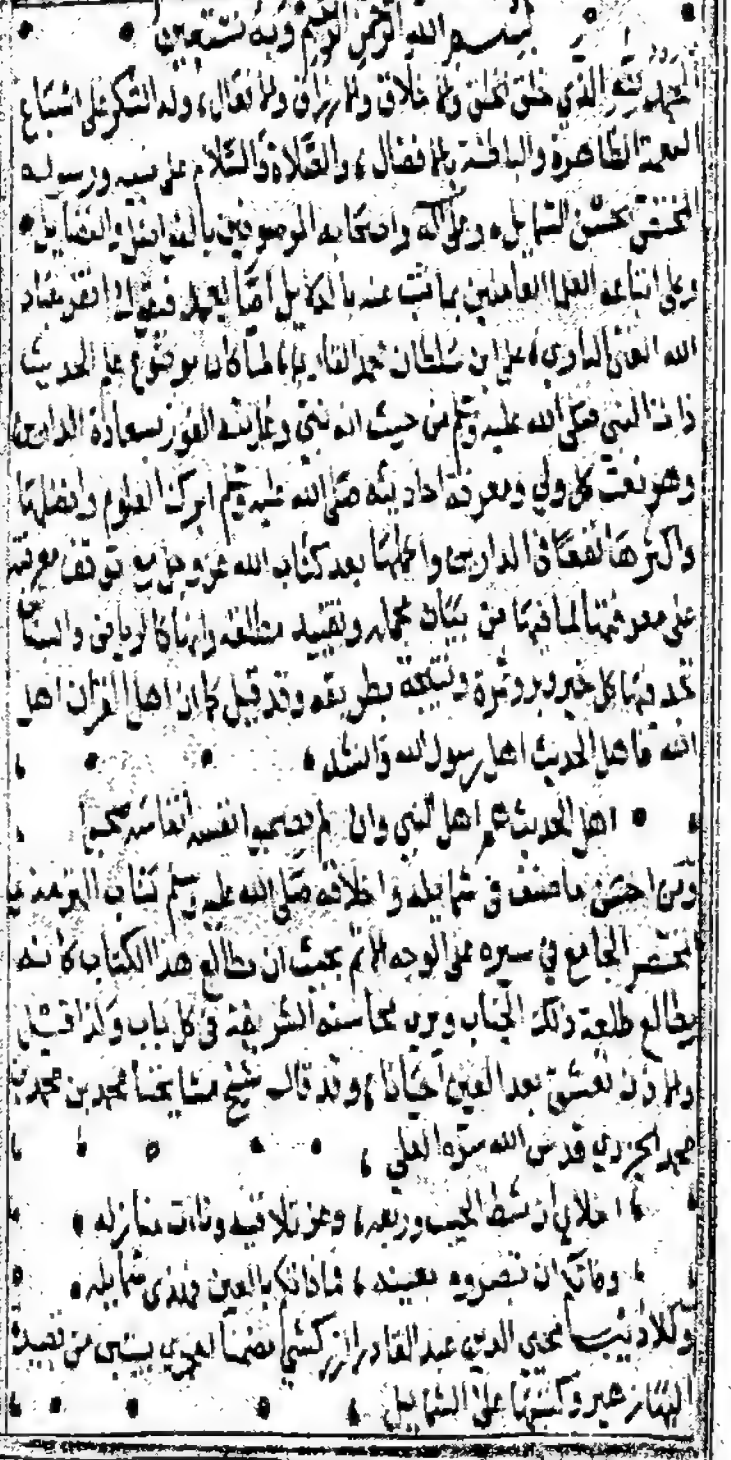 بسم الله الرحمن الرحيم وبه نستعين
الحمد لله الذي خلق الخلق والاخلاق والارزاق والافعال، وله الشكر على اسباغ
النعمة الظاهرة والباطنة بالافضال، والصلاة والسلام على نبيه ورسوله
المختص بحسن الشمايل، وعلى آله واصحابه الموصوفين بالفواضل والفضايل
وعلى اتباعه العلما العاملين بما ثبت عنه بالدلايل اما بعد فيقول افقر عباد
الله الغني الباري، علي ابن سلطان محمد القاري، لما كان موضوع علم الحديث
ذات النبي صلى الله عليه وسلم من حيث انه نبي وغايته الفوز بسعادة الدارين
وهو نعت كل ولي ومعرفة احاديثه صلى الله عليه وسلم ابرك العلوم وافضلها
واكثرها نفعا في الدارين واكملها بعد كتاب الله عز وجل مع توقف معرفته
على معرفتها لما فيها من بيان مجمله وتقييد مطلقه وانها كالرياض والبساتين
تجد فيها كل خير وبر وثمرة ونتيجة بطريقه وقد قيل كما ان اهل القرآن اهل
الله فاهل الحديث اهل رسول الله وانشد
اهل الحديث هم اهل النبي وان لم يصحبوا نفسه انفاسه صحبوا
ومن احسن ما صنف في شمايله واخلاقه صلى الله عليه وسلم كتاب الترمذي
المختصر الجامع في سيره على الوجه الاتم بحيث ان مطالع هذا الكتاب كانه
يطالع طلعة ذلك الجناب ويرى محاسنه الشريفة في كل باب ولذا قيل
والاذن تعشق بعد العين احيانا، وقد قال شيخ مشايخنا محمد بن محمد بن
محمد الجزري قدس الله سره العلي
اخلاي ان شط الحبيب وربعه، وعز تلاقيه وناءت منازله
وفاتكم ان تبصروه بعينه، فما فاتكم بالعين فهذي شمايله
وللاديب محيي الدين عبد القادر الزركشي مضمنا لعجزي بيتين من قصيدة
البها زهير وكتبتها على الشمايل